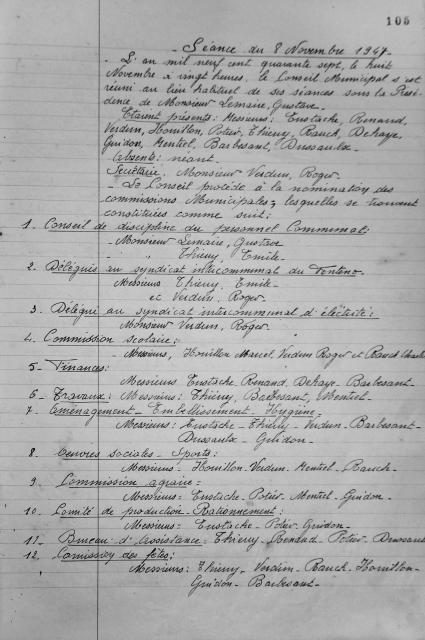 105
- Séance du 8 Novembre 1947 -
- L'an mil neuf cent quarante sept, le huit
Novembre à vingt heures, le Conseil Municipal s'est
réuni au lieu habituel de ses séances sous la Prési-
dence de Monsieur Lemaire, Gustave -
Etaient présents: Messieurs: Eustache, Renaud,
Verdun, Houillon, Potier, Thiény, Rauch, Dehaye,
Guidon, Mentiel, Barbesant, Dussaulx -
Absents: néant -
Secrétaire, Monsieur Verdun, Roger -
- Le Conseil procède à la nomination des
commissions Municipales, lesquelles se trouvent
constituées comme suit:
1. Conseil de discipline du personnel Communal:
- Monsieur Lemaire, Gustave
- " Thiény, Emile -
2. Délégués au syndicat intercommunal du
Messieurs Thiény, Emile -
et Verdun, Roger -
3. Délégué au syndicat intercommunal d'électricité:
Monsieur Verdun, Roger -
4. Commission scolaire:
- Messieurs, Houillon Marcel, Verdun Roger et Rauch Charles
5 - Finances:
Messieurs Eustache Renaud, Dehaye - Barbesant -
6 - Travaux: Messieurs: Thiény, Barbesant, Mentiel -
7 - Aménagement - Embellissement - Hygiène -
Messieurs: Eustache - Thiény - Verdun - Barbesant -
Dussaulx - Guidon -
8. Oeuvres sociales - Sports:
Messieurs - Houillon - Verdun - Mentiel - Rauch -
9. Commission agraire:
Messieurs: Eustache - Potier - Mentiel - Guidon -
10. Comité de production - Rationnement:
Messieurs: Eustache - Potier - Guidon -
11. Bureau d'Assistance: Thiény - Renaud - Potier - Dussaulx
12. Comission des fêtes:
Messieurs: Thiény - Verdun - Rauch - Houillon -
Guidon - Barbesant -